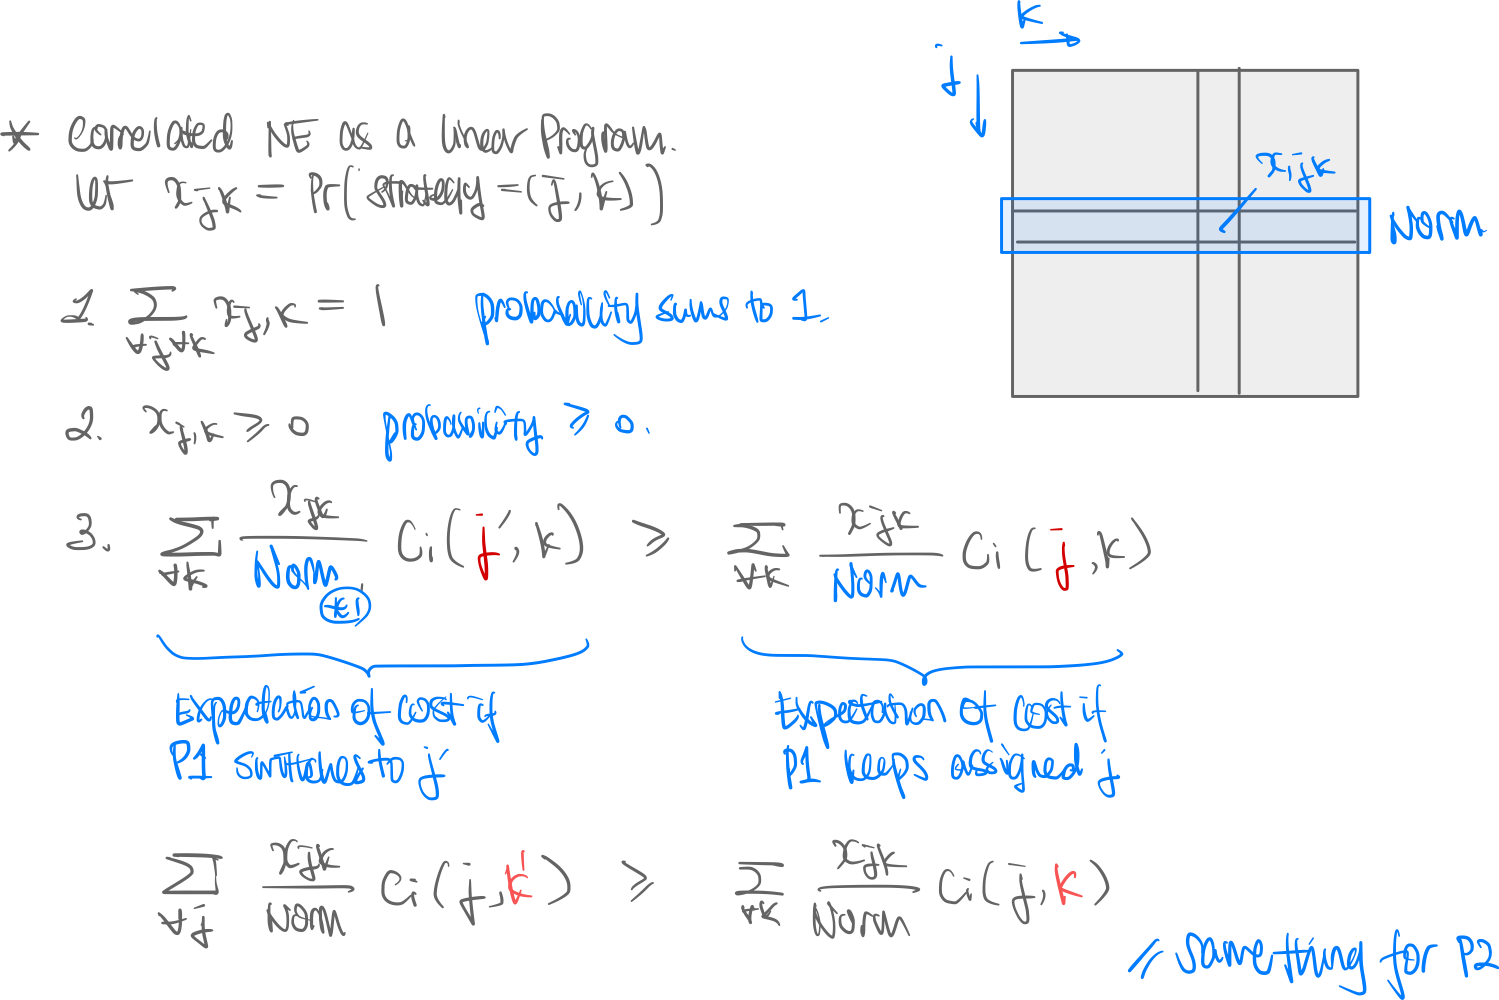 * Correlated NE as a linear Program.
let x_jk = Pr(strategy = (j, k))
1. ∑_{∀j∀k} x_j,k = 1 probability sums to 1.
2. x_j,k ≥ 0 probability ≥ 0.
3. ∑_{∀k} x_jk / Norm *1 Ci(j', k) ≥ ∑_{∀k} x_jk / Norm Ci(j, k)
Expectation of cost if
P1 switches to j'
Expectation of cost if
P1 keeps assigned j
∑_{∀j} x_jk / Norm Ci(j, k') ≥ ∑_{∀k} x_jk / Norm Ci(j, k)
// same thing for P2
k
j
x_jk
Norm